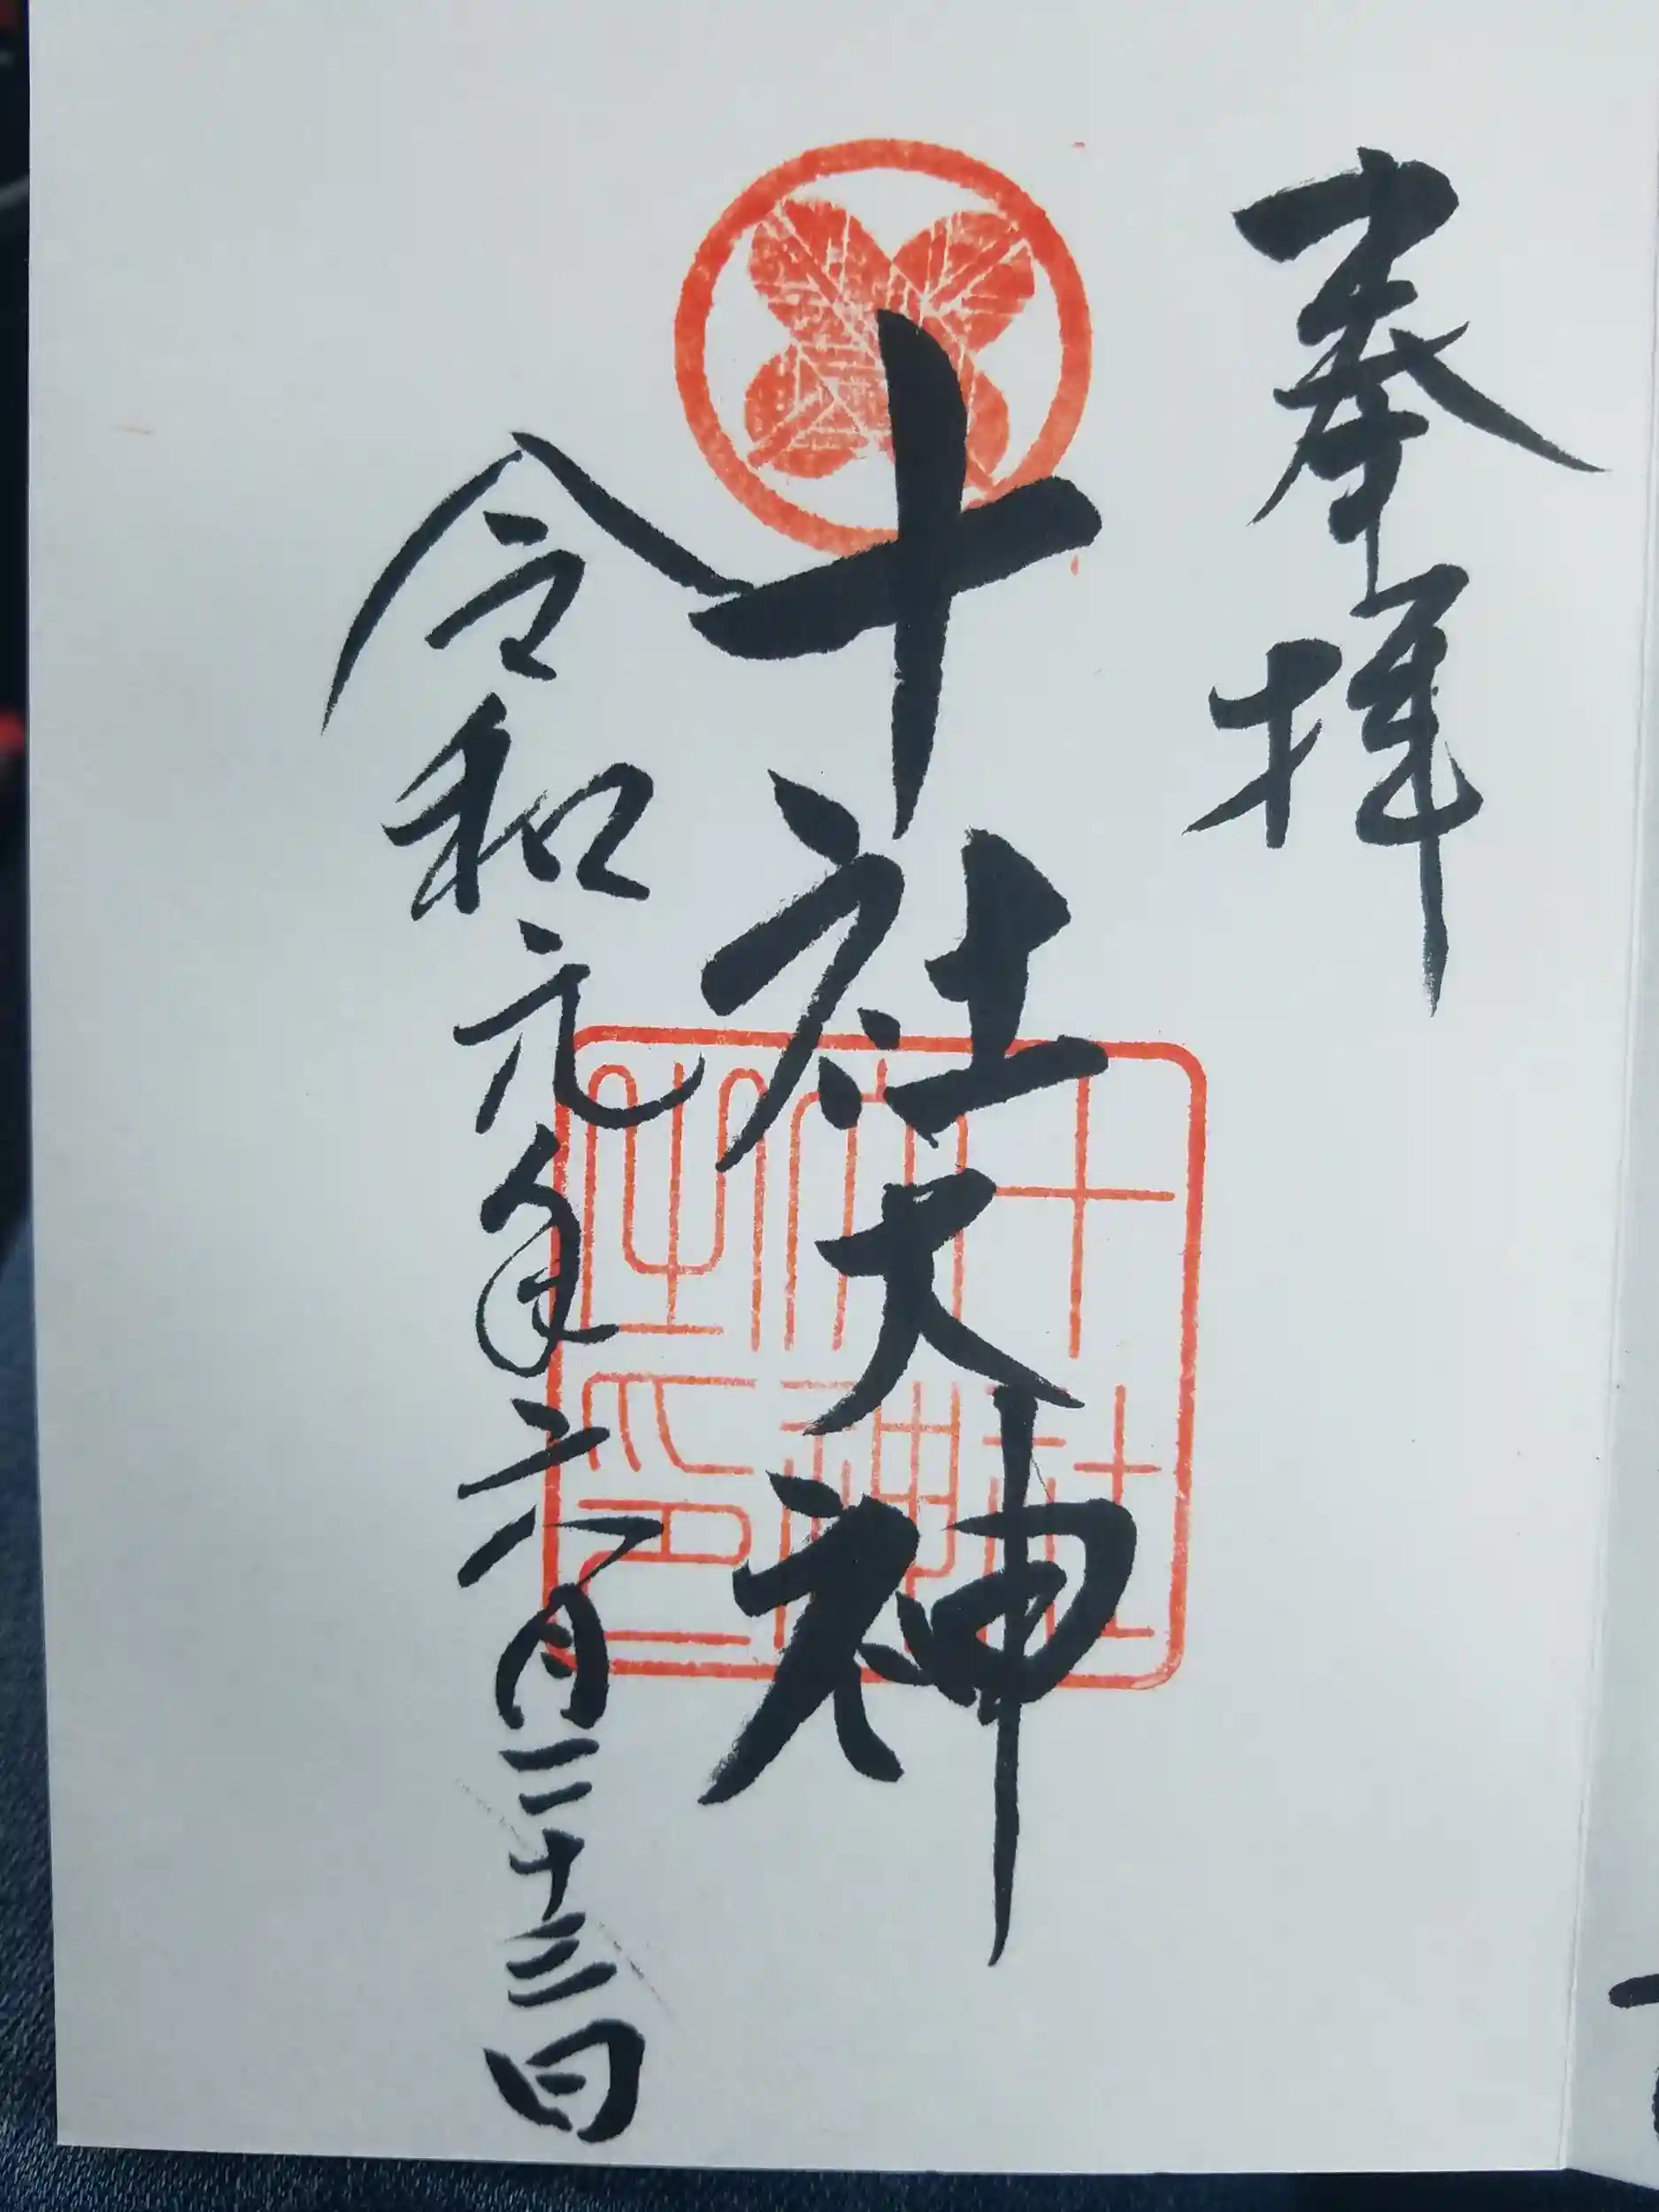 奉拝
十社大神
十社
大神
之印
令和元年六月二十三日